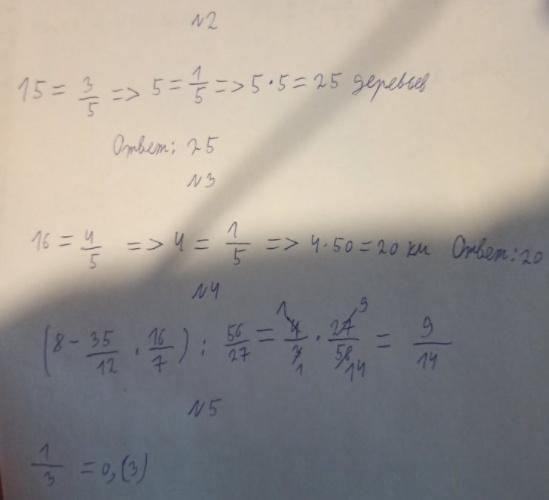 №2
15 = 3/5 => 5 = 1/5 => 5·5 = 25 деревьев
Ответ: 25
№3
16 = 4/5 => 4 = 1/5 => 4·50 = 20 км Ответ: 20
№4
(8 - 35/12 · 16/7) : 56/27 = 4/3 · 27/56 = 9/14
1 9
1 14
№5
1/3 = 0,(3)